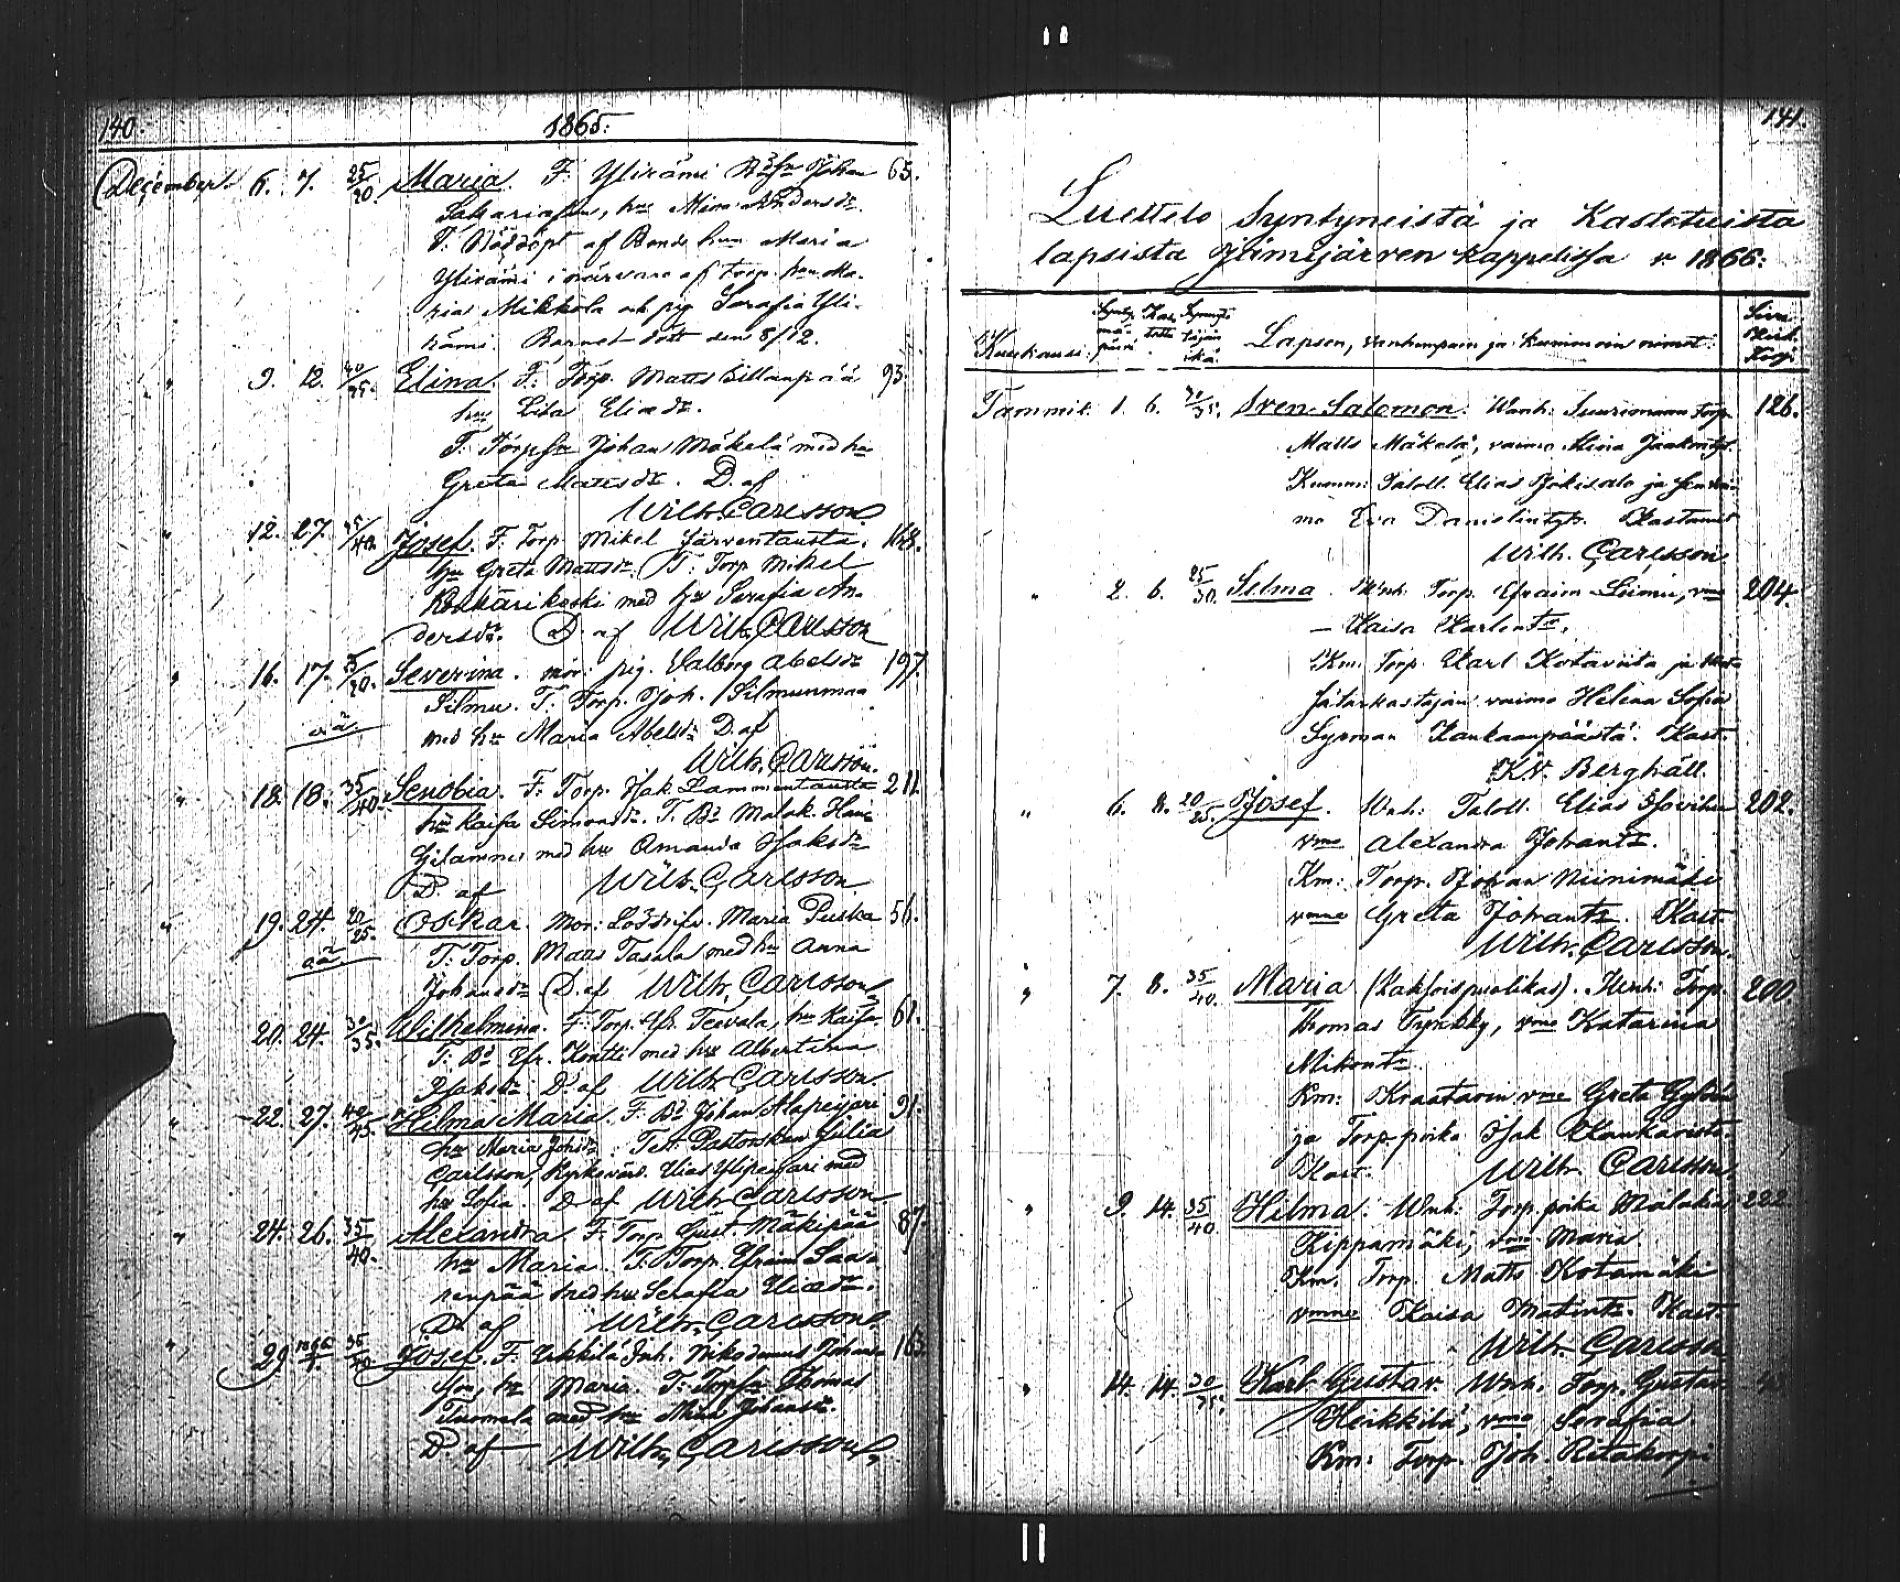 140.
1865.
December. 6. 7. 25/20. Maria. F: Yliräni Johan 65.
hus Mina Andersdr
T: Nöddöpt af Bonde hun Maria
Yliräni i närvaro af torp. hun Ma-
ria Mikkola och pig Serafia Yli-
räni. Barnet dött den 8/12.
" 9. 12. 40/35. Elina. F: Torp. Matts 93.
hu Lisa Eliaedr.
F: Torpsn Johan Mäkelä med hu
Greta Mattsdr. D. af
Wilh. Carlsson
" 12. 27. 45/40. Josef. F. Torp Mikel Järventausta, 168.
hu Greta Mattsdr. T: Torp Mikel
Koskarikoski med hu Serafia An-
dersdr. D. af Wilh. Carlsson
" 16. 17. /20. Severina. mor: pig. Valborg Abelsdr 197.
oä. Silmu. T: Torp. Joh. Silmunmaa
med hu Maria Abelsdr D. af
Wilh. Carlsson.
" 18. 18. 35/40. Senobia. F. Torp. Isak Lammentausta 211.
hu Kaisa Simonsdr. T. Bd Malak. Hau
Gilammes med hu Amanda Isaksdr
D. af Wilh. Carlsson
" 19. 24. 20/25. Oskar. Mor: Maria Puska 56.
oä. T: Torp. Maas Tasala med hu Anna
Johansdr D. af Wilh. Carlsson
20. 24. 30/35. Wilhelmina. F: Torp. Efr. Teevala, hu Kaisa. 61.
T: Bd Efr. Kontti med hu Albertina
Isaksdr D. af Wilh Carlsson.
" 22. 27. 40/45. Hilma Maria. F: Bd Johan Alapeijari 91.
hu Maria Johsdr. Test: Pastorskan Julia
Carlsson, Kyrkovärd. Elias Ylipeijari med
hu Sofia. D. af Wilh Carlsson
" 24. 26. 35/40. Alexandra F. Torp Gust. Mäkipää 87.
hu Maria. T: Torp. Efraim Saa-
renpää med hu Serafia Eliaedr.
D. af Wilh. Carlsson
" 29 1866 35/40 Josef. F. Erkkilä Inh. Nikodemus Johans 163.
son, hu Maria. T: Torpsn Thomas
Tuomela med hu Mina Johansdr.
D. af Wilh. Carlsson
141.
Luettelo Syntyneistä ja Kastetuista
lapsista Jämijärven kappelissa v. 1866:
Kuukausi Synty- mä- päivä Kas- tettu Synnyt- täjän ikä Lapsen, vanhempain ja kummein nimet. Sivu Kirk. Kirj.
Tammik. 1. 6. 30/35. Sven Salomon. Wanh: Suurimaan Torp. 126.
Matts Mäkelä, vaimo Stina Jaakontyt.
Kumm: Taloll. Elias Jokisalo ja
mo Eva Danielintyt. Kastanut
Wilh. Carlsson
" 2. 6. 25/30. Selma. Wnh. Torp. Efraim Liimu, vmo 204.
— Kaisa Karlentr.
Km: Torp. Karl Kotaviita ja
Jätärkastajan vaimo Helena Sofia
Syrman Kankaanpäästä. Kast.
K.V. Berghäll.
" 6. 8. 20/25. Josef. Wnh: Taloll. Elias 202.
vmo Alexandra Johantr.
Km: Torp. Johan Niinimäki
vmone Greta Johantr. Kast.
Wilh. Carlsson.
" 7. 8. 35/40. Maria (Kaksoispuolikas). Wnh: Torp. 200.
Thomas Tynkky, vmo Katarina
Mikontr
Km: Kraatarin vmo Greta Gylden
ja Torp. poika Isak
Kast. Wilh. Carlsson.
" 9. 14. 35/40. Hilma. Wnh: Torp. poika Malakias 222.
Kippamäki, vmo Maria.
Km. Torp. Matts Kotamäki
vmone Kaisa Matintr. Kast.
Wilh. Carlsson
" 14. 14. 30/35. Karl Gustav. Wnh. Torp. Gustav
Heikkilä, vmo Serafia
Km: Torp. Joh. Ritakorpi